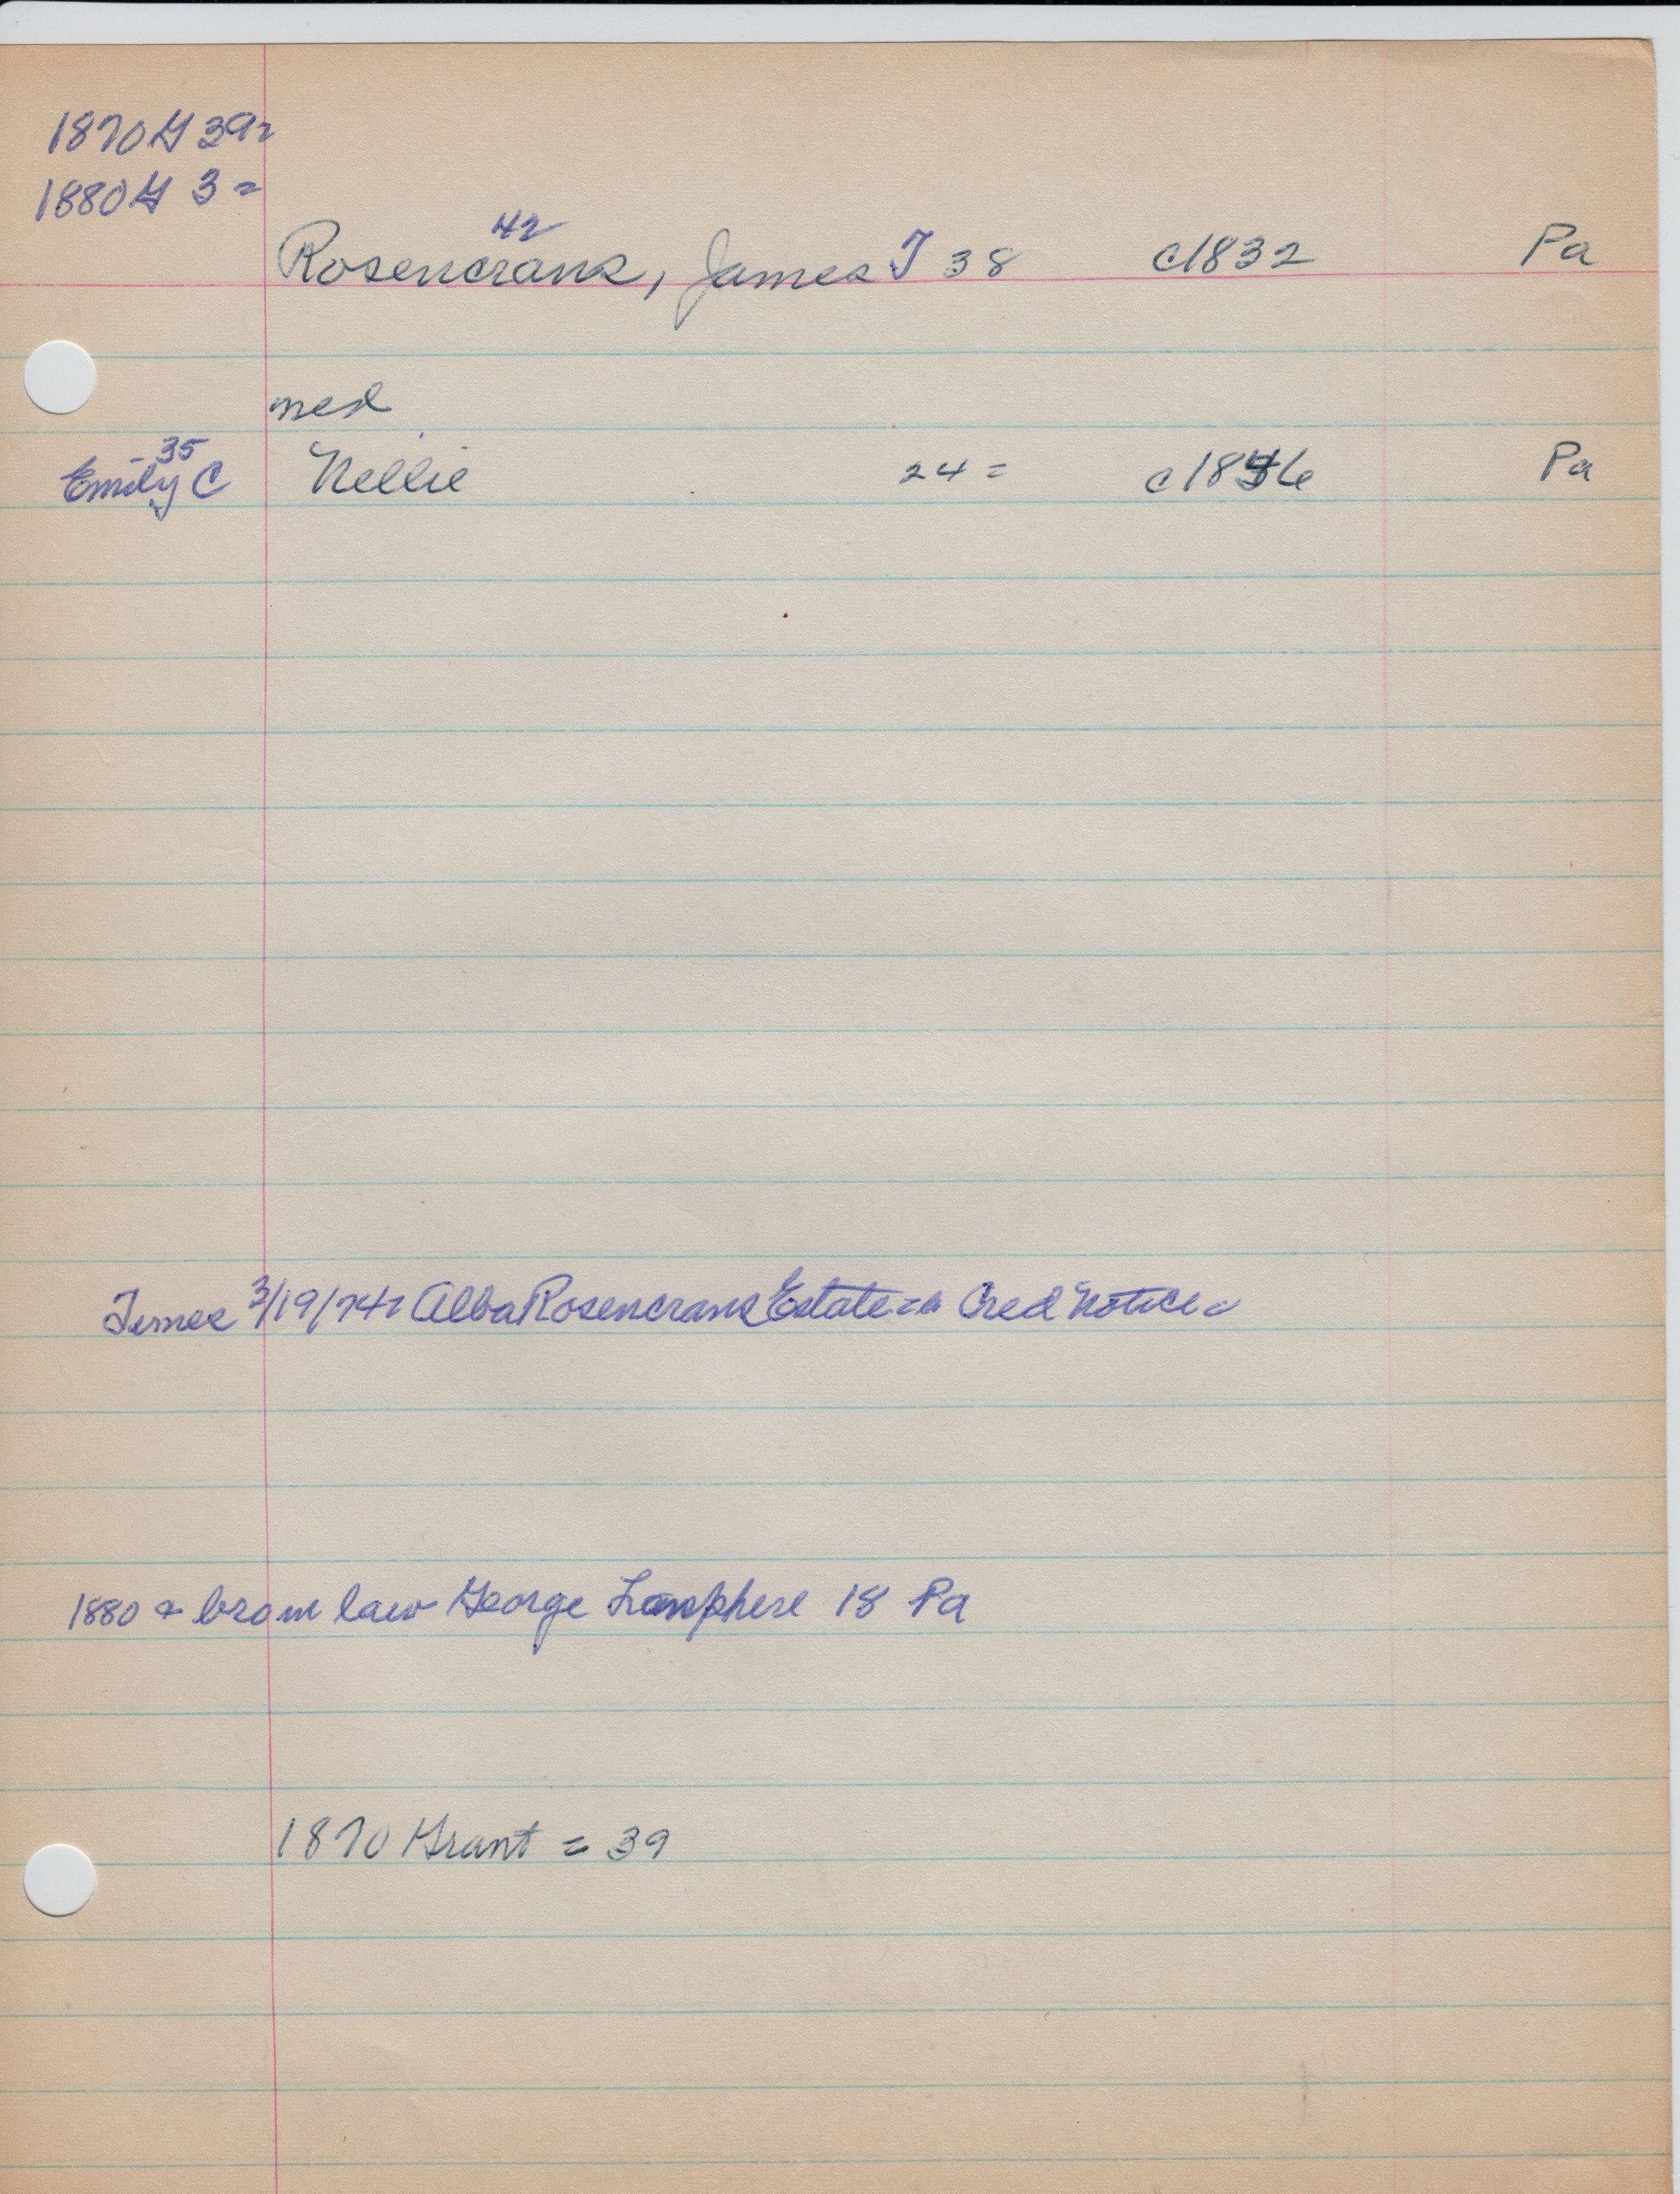 1870 G 39=
1880 G 3=
42
Rosencrans, James T 38 c1832 Pa
med
35
Emily C Nellie 24= c1846 Pa
Times 3/19/74= Alba Rosencrans Estate= Cred Notice=
1880 = bro in law George Lamphere 18 Pa
1870 Grant = 39